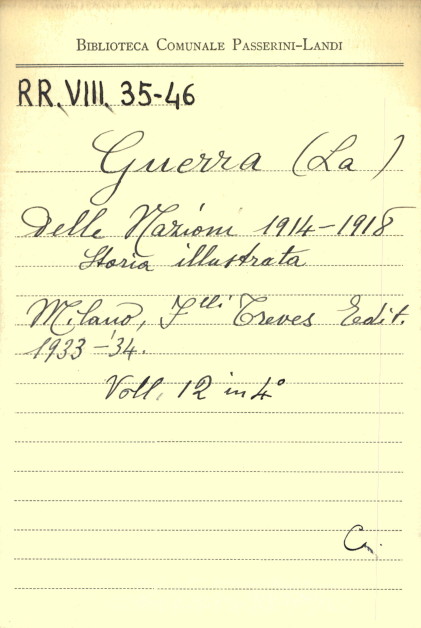 BIBLIOTECA COMUNALE PASSERINI-LANDI
RR. VIII. 35-46
Guerra (La)
delle Nazioni 1914-1918
Storia illustrata
Milano, F.lli Treves Edit.
1933-'34.
Voll. 12 in 4°